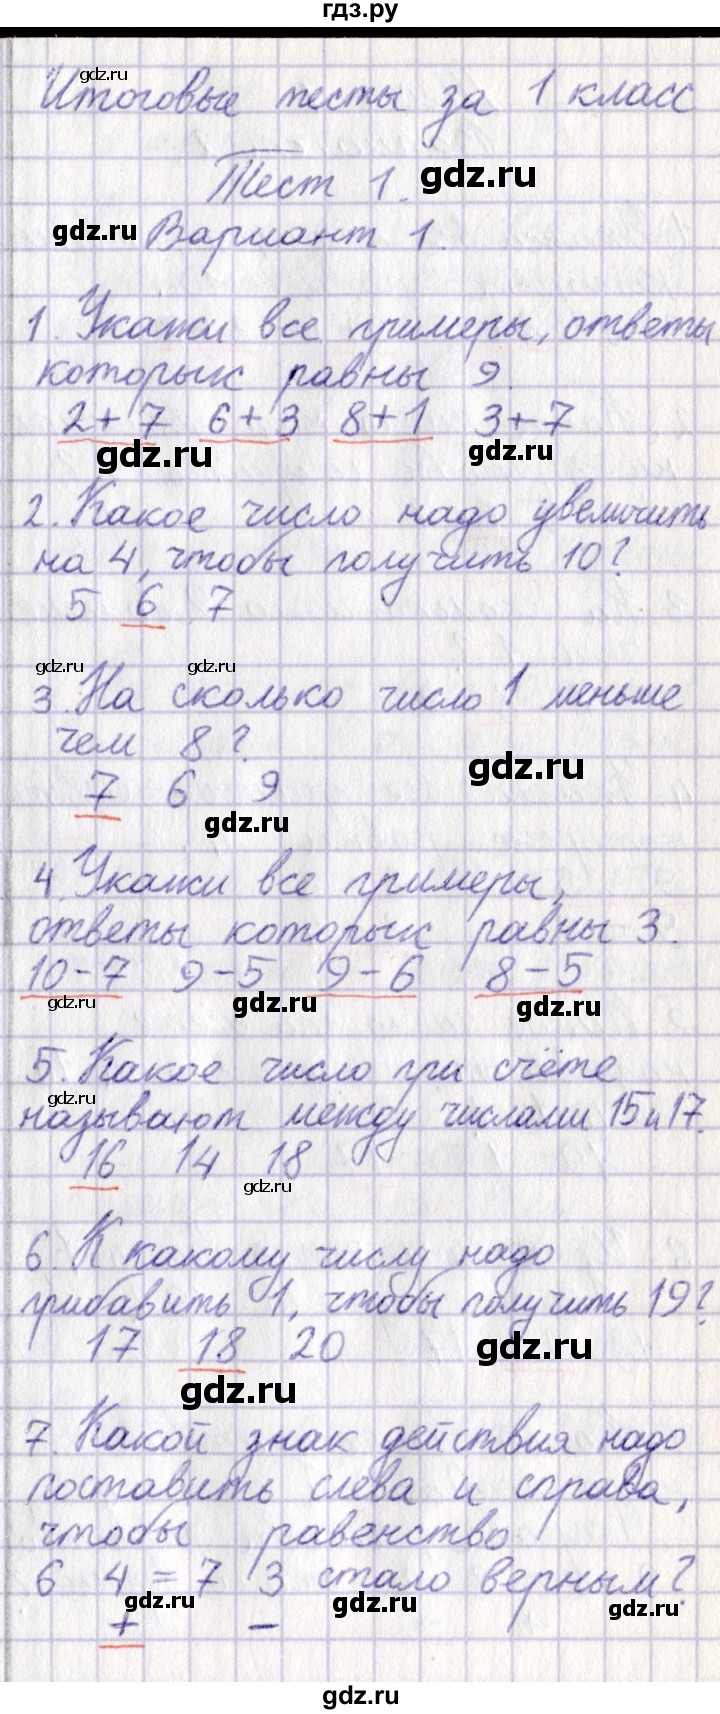 гдз.ру
gdz.ru
Итоговые тесты за 1 класс
Тест 1. gdz.ru
gdz.ru Вариант 1.
1. Укажи все примеры, ответы
которых равны 9.
2+7 6+3 8+1 3+7
gdz.ru gdz.ru
2. Какое число надо увеличить
на 4, чтобы получить 10?
5 6 7
gdz.ru gdz.ru
3. На сколько число 1 меньше
чем 8? gdz.ru
7 6 9
gdz.ru
4. Укажи все примеры,
ответы которых равны 3.
10-7 9-5 9-6 8-5
gdz.ru gdz.ru gdz.ru
5. Какое число при счёте
gdz.ru
называют между числами 15 и 17.
16 14 18
gdz.ru
6. К какому числу надо
прибавить 1, чтобы получить 19?
17 18 20 gdz.ru
gdz.ru
7. Какой знак действия надо
поставить слева и справа,
чтобы равенство
6 4 = 7 3 стало верным?
gdz.ru gdz.ru gdz.ru
+ −
gdz.ru